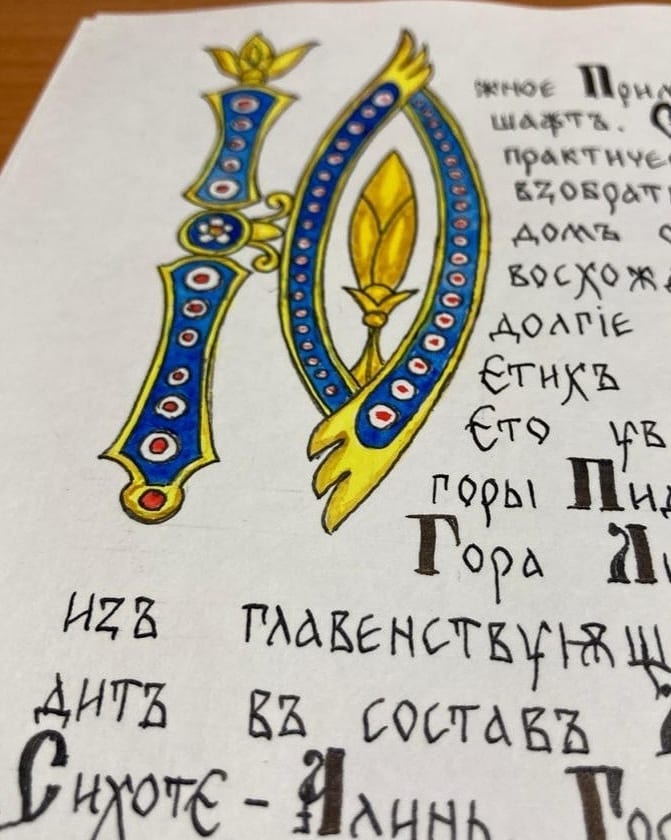 Южноє Прим
шафтъ. С
практичє
вꙁобрат
домъ с
восхож
долгіє
єтихъ
Єто ув
горы Пид
Гора Ли
иꙁъ главєнствуѭщ
дитъ въ составъ
Сихотє-Алинь Гос